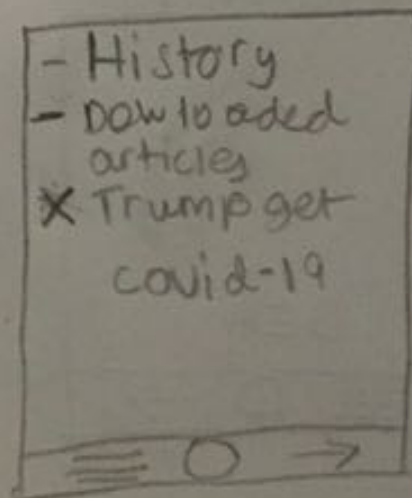 - History
- Dowloaded
articles
X Trump get
covid-19